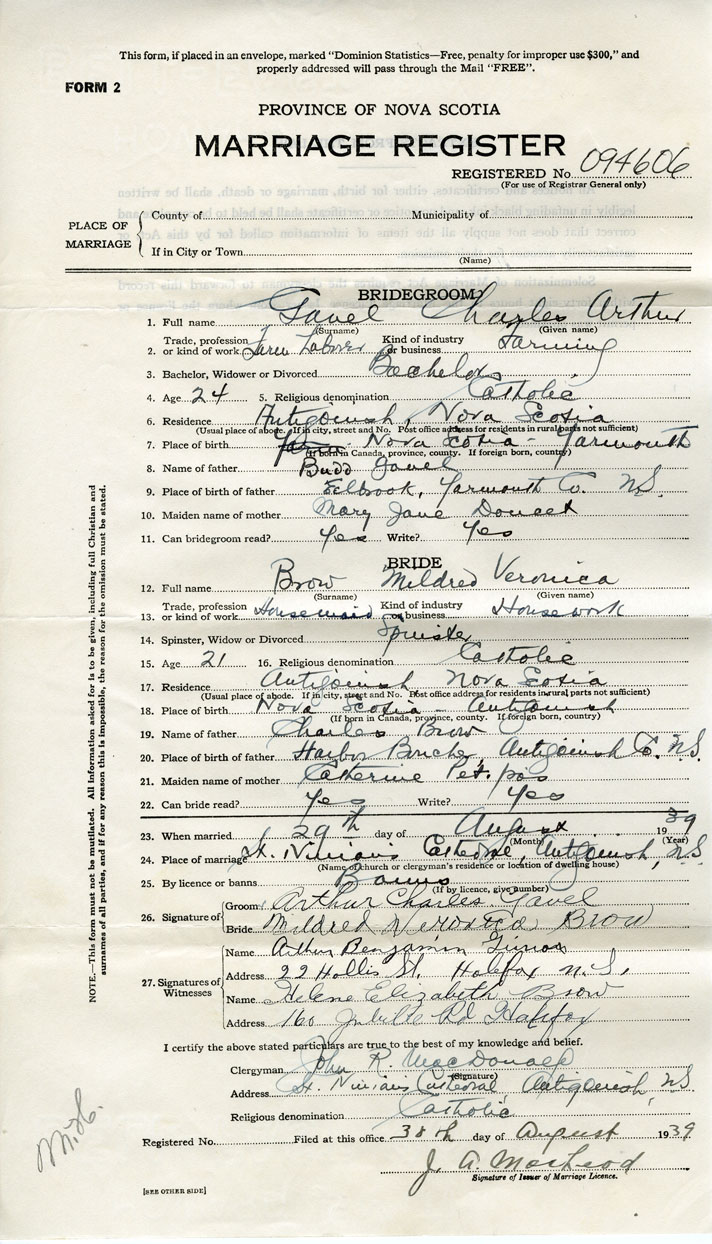 This form, if placed in an envelope, marked "Dominion Statistics—Free, penalty for improper use $300," and
properly addressed will pass through the Mail "FREE".
FORM 2
PROVINCE OF NOVA SCOTIA
MARRIAGE REGISTER
REGISTERED No. 094606
(For use of Registrar General only)
PLACE OF MARRIAGE
County of Municipality of
If in City or Town
(Name)
BRIDEGROOM
1. Full name Gavel Charles Arthur
(Surname) (Given name)
2. Trade, profession or kind of work Farm Laborer Kind of industry or business Farming
3. Bachelor, Widower or Divorced Bachelor
4. Age 24 5. Religious denomination Catholic
6. Residence Antigonish, Nova Scotia
(Usual place of abode. If in city, street and No. Post office address for residents in rural parts not sufficient)
7. Place of birth Nova Scotia - Yarmouth
(If born in Canada, province, county. If foreign born, country)
8. Name of father Budd Gavel
9. Place of birth of father Yarmouth Co. N.S.
10. Maiden name of mother Mary Jane Doucet
11. Can bridegroom read? Yes Write? Yes
BRIDE
12. Full name Brow Mildred Veronica
(Surname) (Given name)
13. Trade, profession or kind of work Housemaid Kind of industry or business Housework
14. Spinster, Widow or Divorced Spinster
15. Age 21 16. Religious denomination Catholic
17. Residence Antigonish Nova Scotia
(Usual place of abode. If in city, street and No. Post office address for residents in rural parts not sufficient)
18. Place of birth Nova Scotia - Antigonish
(If born in Canada, province, county. If foreign born, country)
19. Name of father Charles Brow
20. Place of birth of father Harbor Bouche, Antigonish Co. N.S.
21. Maiden name of mother Catherine
22. Can bride read? Yes Write? Yes
23. When married 29th day of August 1939
(Month) (Year)
24. Place of marriage St. Ninian's Cathedral, Antigonish, N.S
(Name of church or clergyman's residence or location of dwelling house)
25. By licence or banns Banns
(If by licence, give number)
26. Signature of
Groom Arthur Charles Gavel
Bride Mildred Veronica Brow
27. Signatures of Witnesses
Name Arthur Benjamin
Address 22 Hollis St. Halifax N.S.
Name Helene Elizabeth Brow
Address 160 Rd Halifax
I certify the above stated particulars are true to the best of my knowledge and belief.
Clergyman John R. MacDonald
(Signature)
Address St. Ninian's Cathedral, Antigonish, N.S
Religious denomination Catholic
Registered No. Filed at this office 30th day of August 1939
J. A. MacLeod
Signature of Issuer of Marriage Licence.
[SEE OTHER SIDE]
NOTE.—This form must not be mutilated. All information asked for is to be given, including full Christian and
surnames of all parties, and if for any reason this is impossible, the reason for the omission must be stated.